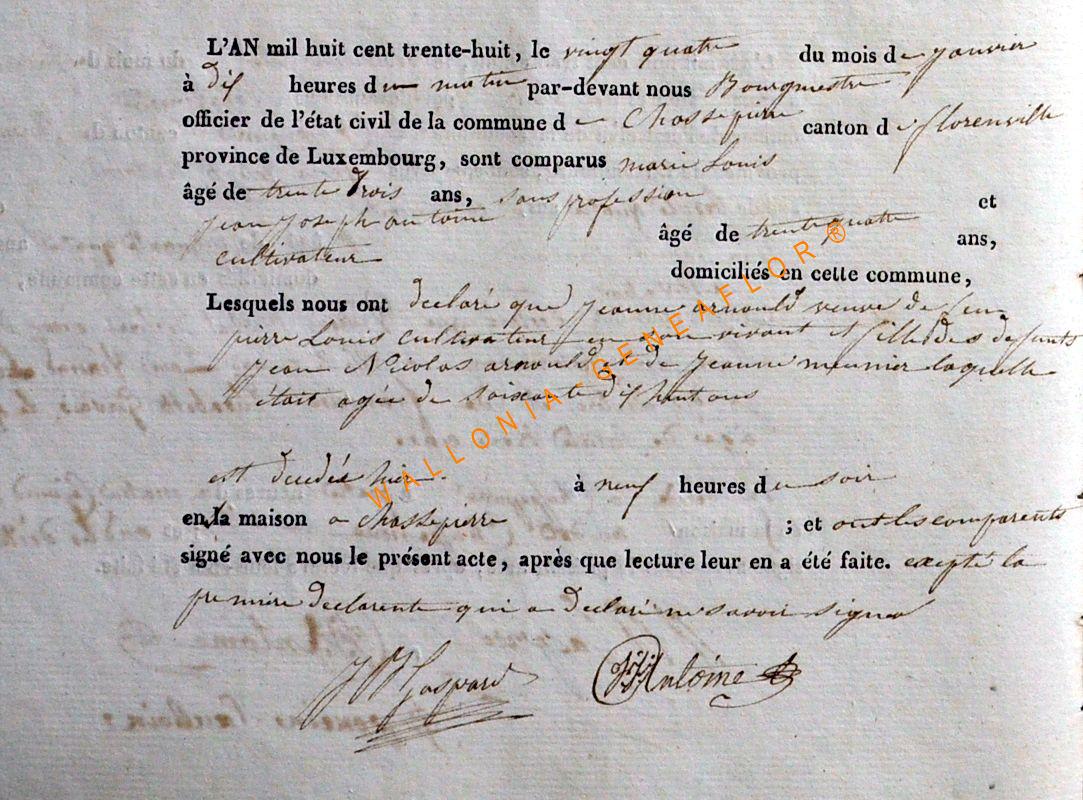 L'AN mil huit cent trente-huit, le vingt quatre du mois de janvier
à dix heures du matin par-devant nous Bourgmestre
officier de l'état civil de la commune de Chassepierre canton de florenville
province de Luxembourg, sont comparus marie Louis
âgé de trente trois ans, sans profession et
jean joseph antoine âgé de trente quatre ans,
cultivateur domiciliés en cette commune,
Lesquels nous ont declaré que jeanne arnould veuve de feu
pierre Louis cultivateur en son vivant et fille des defunts
jean Nicolas arnould et de jeanne meunier laquelle
était agée de soixante dix huit ans
est decedée hier à neuf heures du soir
en sa maison a chassepierre ; et ont les comparents
signé avec nous le présent acte, après que lecture leur en a été faite. excepté la
premiere declarente qui a declaré ne savoir signer
J B Gaspard JJAntoine
WALLONIA-GENEAFLOR ®